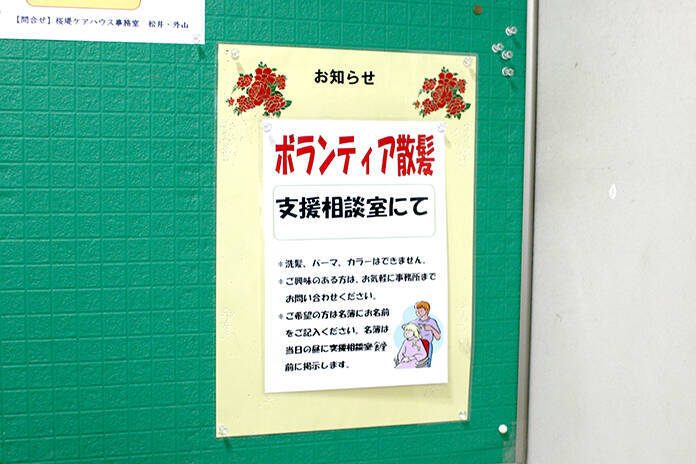 【問合せ】桜堤ケアハウス事務室　松井・外山
お知らせ
ボランティア散髪
支援相談室にて
＊洗髪、パーマ、カラーはできません。
＊ご興味のある方は、お気軽に事務所まで
お問い合わせください。
＊ご希望の方は名簿にお名前
をご記入ください。名簿は
当日の昼に支援相談室食堂
前に掲示します。